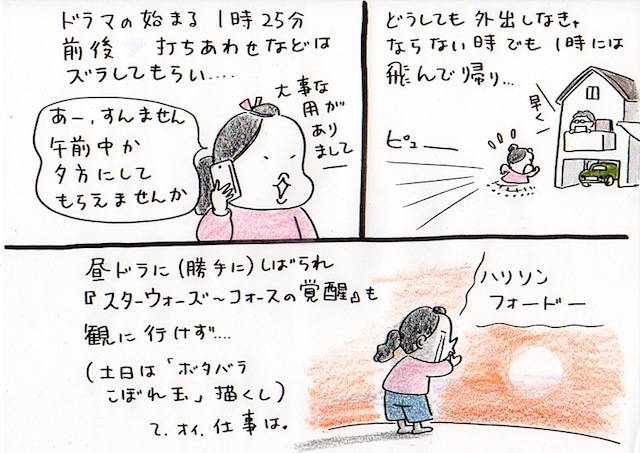 ドラマの始まる1時25分
前後 打ちあわせなどは
ズラしてもらい‥‥
あー、すんません
午前中か
夕方にして
もらえませんか
大事な
用が
あり
まして
どうしても外出しなきゃ
ならない時でも1時には
飛んで帰り…
早く
ピュー
昼ドラに(勝手に)しばられ
『スターウォーズ〜フォースの覚醒』も
観に行けず‥‥
(土日は「ボタバラ
こぼれ玉」描くし)
て、オイ、仕事は。
ハリソン
フォードー